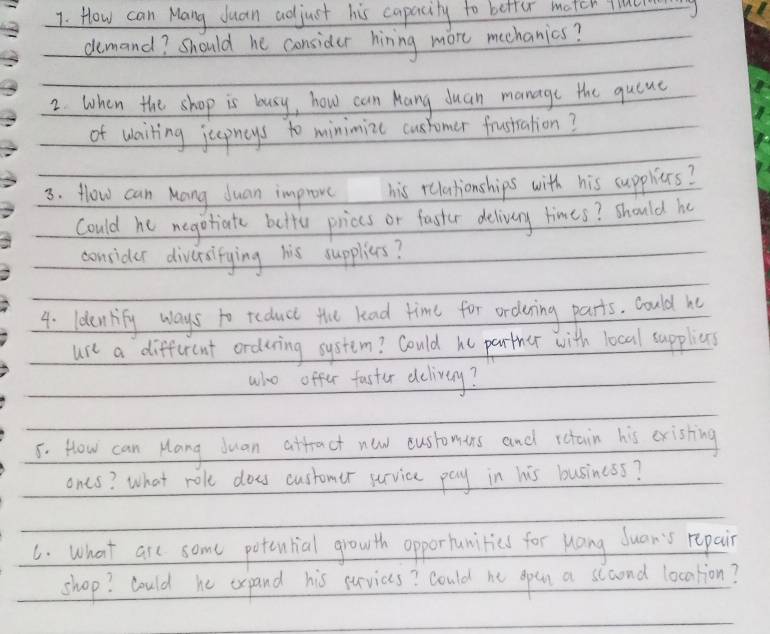 1. How can Mang Juan adjust his capacity to better match fluctuating
demand? Should he consider hiring more mechanics?
2. When the shop is busy, how can Mang Juan manage the queue
of waiting jeepneys to minimize customer frustration?
3. How can Mang Juan improve his relationships with his suppliers?
Could he negotiate better prices or faster delivery times? Should he
consider diversifying his suppliers?
4. Identify ways to reduce the lead time for ordering parts. Could he
use a different ordering system? Could he partner with local suppliers
who offer faster delivery?
5. How can Mang Juan attract new customers and retain his existing
ones? What role does customer service pay in his business?
6. What are some potential growth opportunities for Mang Juan's repair
shop? Could he expand his services? Could he open a second location?